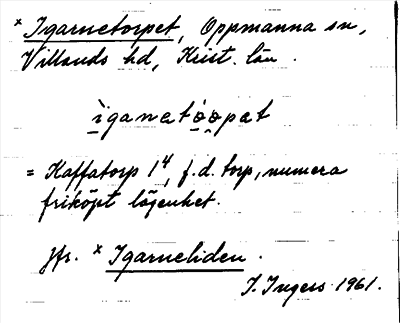 × Igarnetorpet, Oppmanna sn,
Villands hd, Krist. län.
ìganetóo̯pet
= Kaffatorp 1⁴, f.d. torp, numera
friköpt lägenhet.
Jfr. × Igarneliden.
I. Ingers 1961.